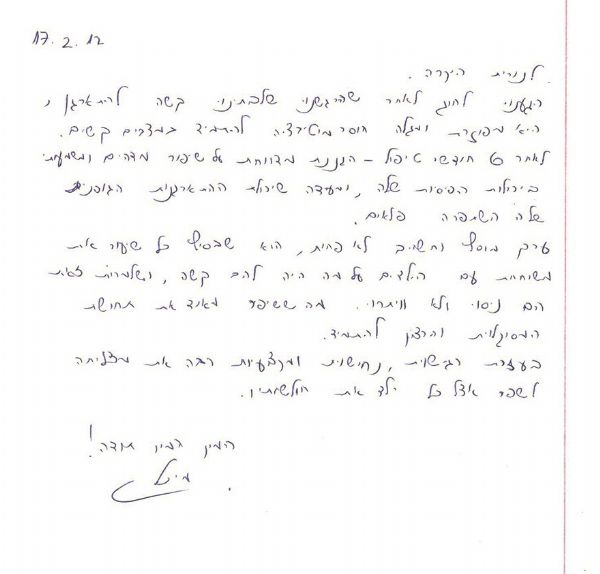 17.2.12
לנורית היקרה.
הגענו לחוג לאחר שהרגשנו שלבתינו קשה להתארגן,
היא מפוזרת ומגלה חוסר מוטיבציה להתמיד בדברים קשים.
לאחר 6 חודשי טיפול - הגננת מדווחת על שיפור מדהים ומשמעותי
ביכולות הפיסיות שלה, ומעידה שיכולת ההתארגנות הגופנית
שלה השתפרה פלאים.
ערך מוסף וחשוב לא פחות, הוא שבסוף כל שעור את
משוחחת עם הילדים על מה היה להם קשה, ושלמרות זאת
הם ניסו ולא וויתרו. מה ששיפר מאוד את תחושת
המסוגלות והרצון להתמיד.
בעזרת רגישות, נחישות ומקצועיות רבה את מצליחה
לשפר אצל כל ילד את חולשותיו.
המון המון תודה!